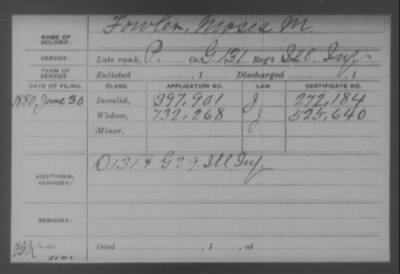 NAME OF SOLDIER: Fowler, Moses M.
SERVICE: Late rank, P. Co. G 131 Reg't Ill. Inf.
TERM OF SERVICE: Enlisted , 1 Discharged , 1
DATE OF FILING. CLASS. APPLICATION NO. LAW. CERTIFICATE NO.
1880 June 30 Invalid, 397,901 J. 272,184
Widow, 732,268 J 525,640
Minor,
ADDITIONAL SERVICES: D 131 & G 29 Ill Inf
REMARKS:
Died , 1 , at